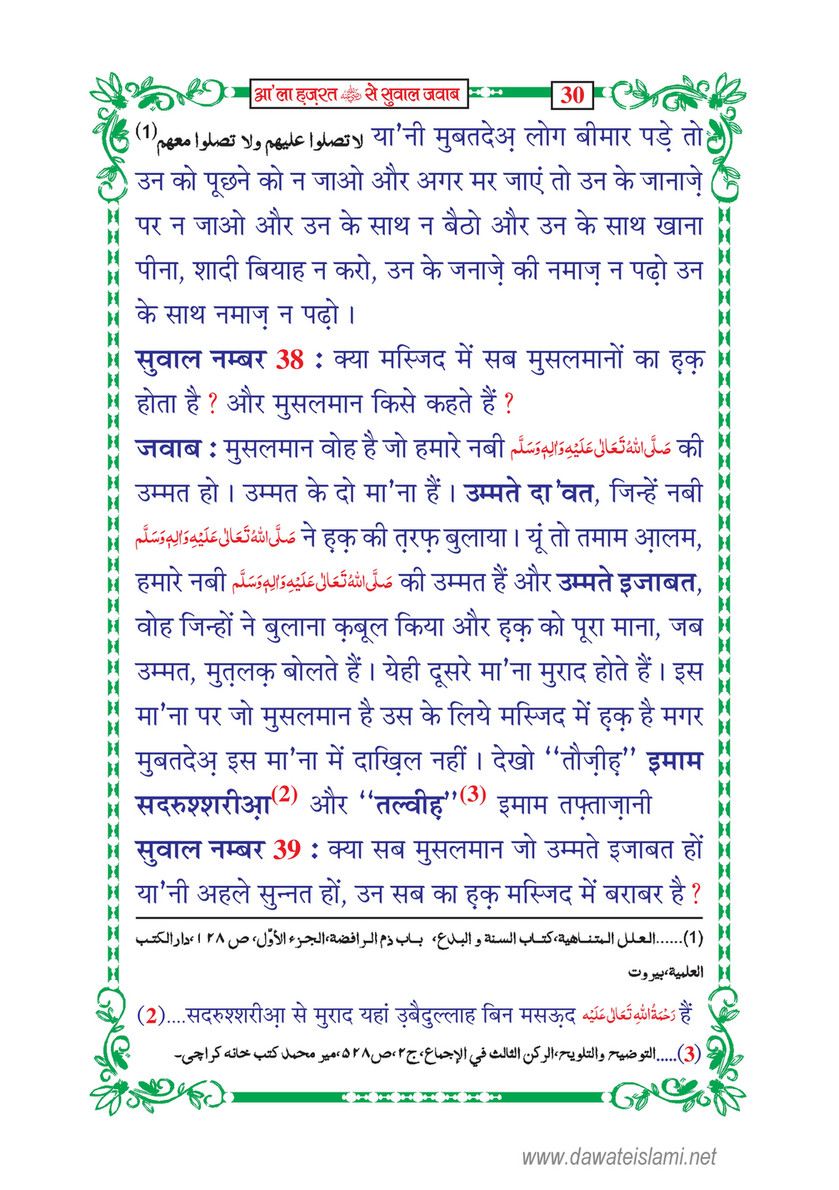 आ'ला हज़रत رضی اللہ عنہ से सुवाल जवाब
30
لا تصلوا عليهم ولا تصلوا معهم(1) या'नी मुबतदेअ़ लोग बीमार पड़े तो
उन को पूछने को न जाओ और अगर मर जाएं तो उन के जानाज़े
पर न जाओ और उन के साथ न बैठो और उन के साथ खाना
पीना, शादी बियाह न करो, उन के जनाज़े की नमाज़ न पढ़ो उन
के साथ नमाज़ न पढ़ो ।
सुवाल नम्बर 38 : क्या मस्जिद में सब मुसलमानों का ह़क़
होता है ? और मुसलमान किसे कहते हैं ?
जवाब : मुसलमान वोह है जो हमारे नबी صَلَّى اللهُ تَعَالٰى عَلَيْهِ وَاٰلِهٖ وَسَلَّم की
उम्मत हो । उम्मत के दो मा'ना हैं । उम्मते दा'वत, जिन्हें नबी
صَلَّى اللهُ تَعَالٰى عَلَيْهِ وَاٰلِهٖ وَسَلَّم ने ह़क़ की त़रफ़ बुलाया । यूं तो तमाम आ़लम,
हमारे नबी صَلَّى اللهُ تَعَالٰى عَلَيْهِ وَاٰلِهٖ وَسَلَّم की उम्मत हैं और उम्मते इजाबत,
वोह जिन्हों ने बुलाना क़बूल किया और ह़क़ को पूरा माना, जब
उम्मत, मुत़लक़ बोलते हैं । येही दूसरे मा'ना मुराद होते हैं । इस
मा'ना पर जो मुसलमान है उस के लिये मस्जिद में ह़क़ है मगर
मुबतदेअ़ इस मा'ना में दाख़िल नहीं । देखो ‘‘तौज़ीह़’’ इमाम
सदरुश्शरीआ़(2) और ‘‘तल्वीह़’’(3) इमाम तफ़्ताज़ानी
सुवाल नम्बर 39 : क्या सब मुसलमान जो उम्मते इजाबत हों
या'नी अहले सुन्नत हों, उन सब का ह़क़ मस्जिद में बराबर है ?
(1)......العلل المتناهية،كتاب السنة و البدع، باب ذم الرافضة،الجزء الأوّل، ص ١٢٨،دارالكتب
العلمية،بيروت
(2)....सदरुश्शरीआ़ से मुराद यहां उ़बैदुल्लाह बिन मसऊ़द رَحْمَةُ اللهِ تَعَالٰى عَلَيْه हैं
(3).....التوضيح والتلويح،الركن الثالث في الإجماع،ج٢،ص٥٢٨،مير محمد كتب خانه كراچی۔
www.dawateislami.net